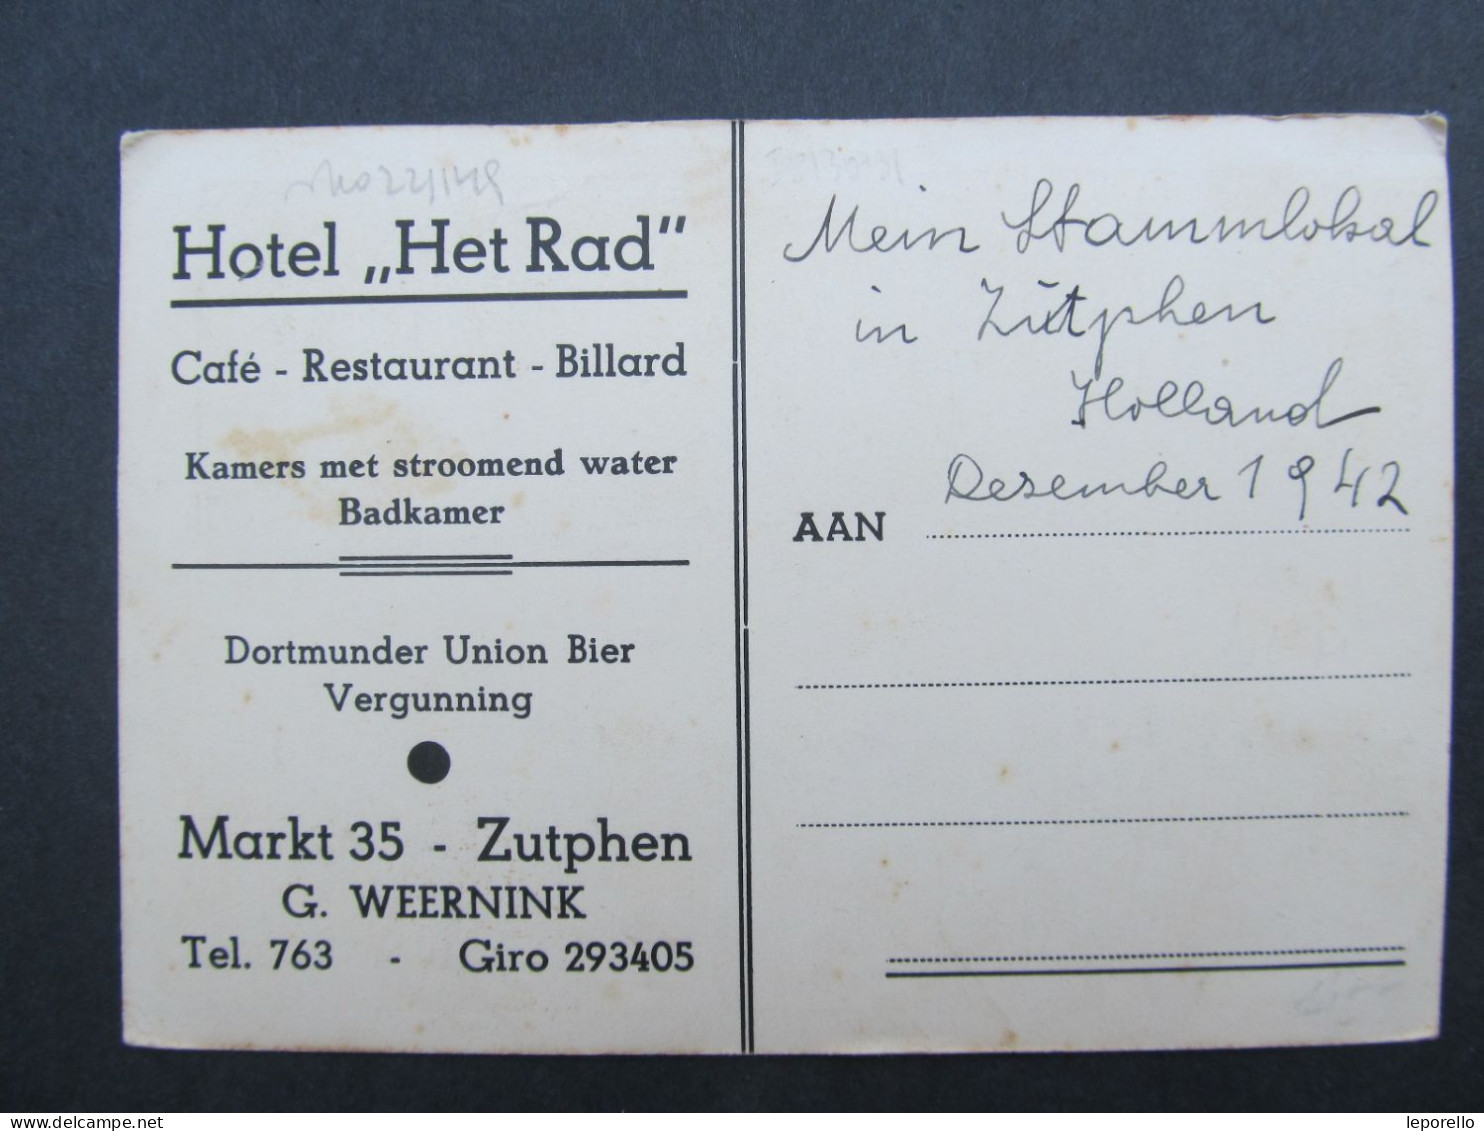 Hotel „Het Rad”
Café - Restaurant - Billard
Kamers met stroomend water
Badkamer
Dortmunder Union Bier
Vergunning
Markt 35 - Zutphen
G. WEERNINK
Tel. 763 - Giro 293405
Mein Stammlokal
in Zütphen
Holland
Desember 1942
AAN
delcampe.net
leporello